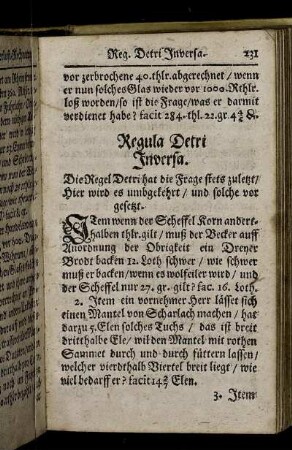 Reg. Detri Inversa. 231
vor zerbrochene 40. thlr. abgerechnet / wenn
er nun solches Glas wieder vor 1000. Rthlr.
loß worden / so ist die Frage / was er darmit
verdienet habe? facit 284. thl. 22. gr.
Regula Detri
Inversa.
Die Regel Detri hat die Frage stets zuletzt /
Hier wird es umbgekehrt / und solche vor
gesetzt.
ITem wenn der Scheffel Korn andert-
halben thlr. gilt / muß der Becker auff
Anordnung der Obrigkeit ein Dreyer
Brodt backen 12. Loth schwer / wie schwer
muß er backen / wenn es wolfeiler wird / und
der Scheffel nur 27. gr. gilt? fac. 16. Loth.
2. Item ein vornehmer Herr lässet sich
einen Mantel von Scharlach machen / hat
darzu 5. Elen solches Tuchs / das ist breit
dritthalbe Ele / wil den Mantel mit rothen
Sammet durch und durch füttern lassen /
welcher vierdthalb Viertel breit liegt / wie
viel bedarff er? facit 14 2/7 Elen.
3. Item